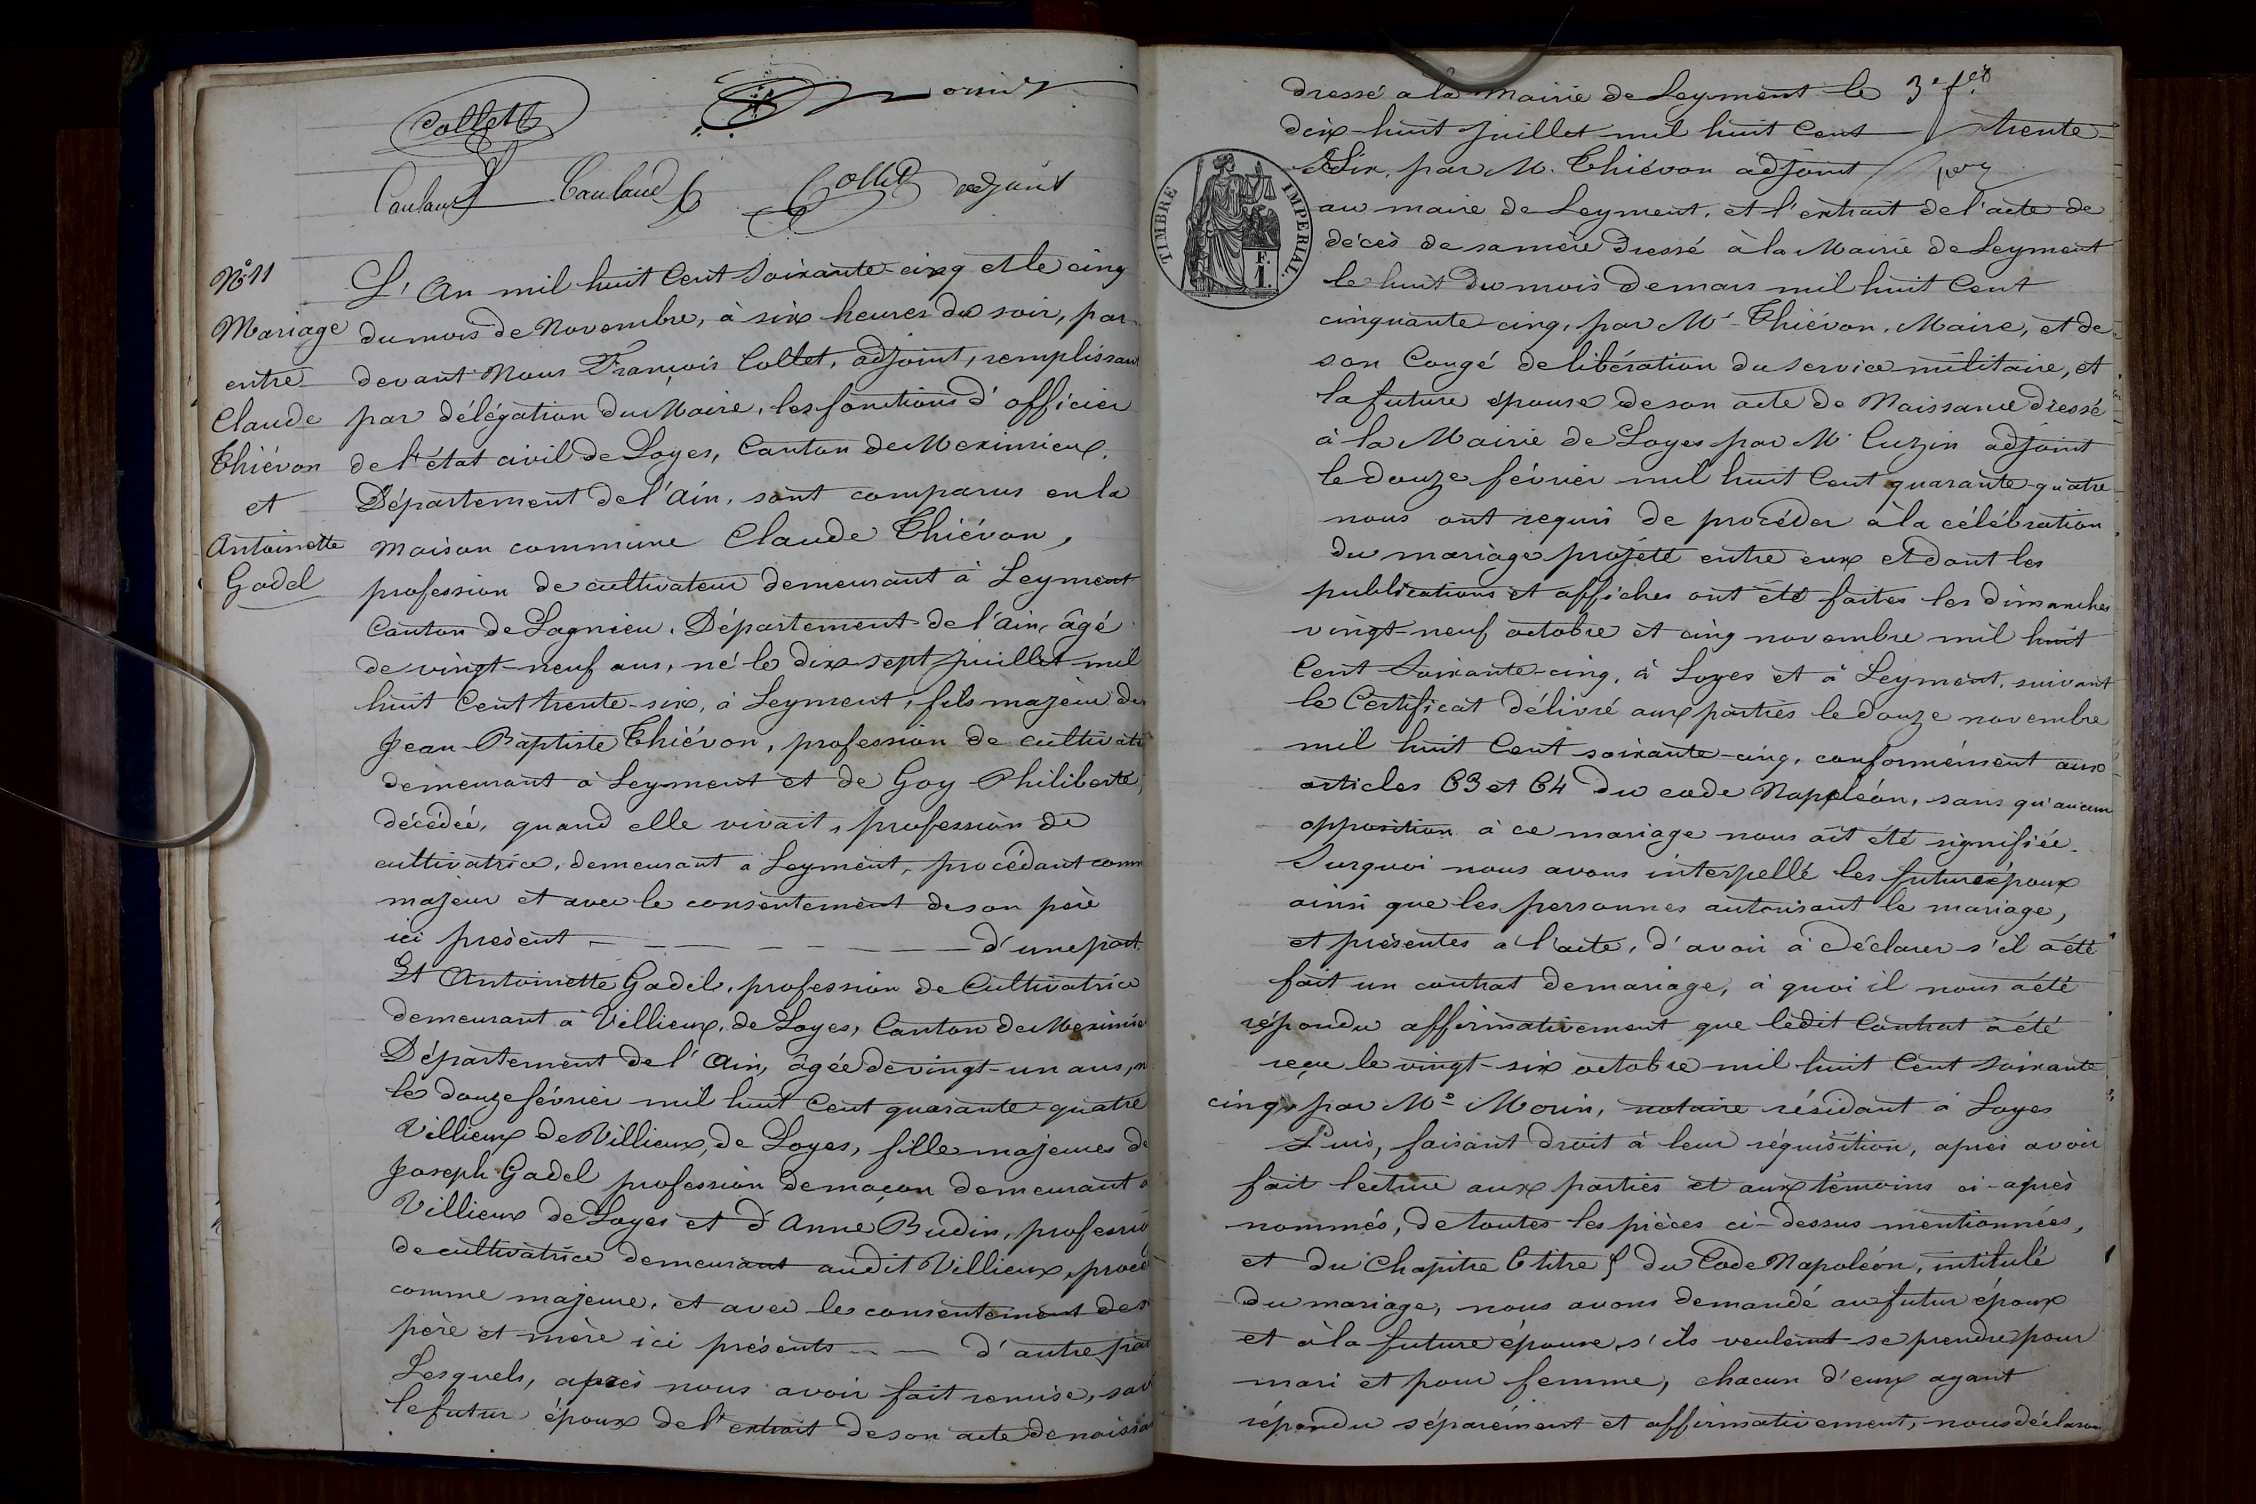 Collet
Cornier
Caulaud Caulaud Collet adjoint
N° 11
Mariage
entre
Claude
Thiévon
et
Antoinette
Godel
L'An mil huit Cent Soixante-cinq et le cinq
du mois de Novembre, à six heures du soir, par-
devant Nous François Collet, adjoint, remplissant
par délégation du Maire, les fonctions d'officier
de l'état civil de Loyes, Canton de Meximieux,
Département de l'Ain, sont comparus en la
maison commune Claude Thiévon,
profession de cultivateur demeurant à Leyment
Canton de Lagnieu, Département de l'Ain, âgé
de vingt-neuf ans, né le dix-sept juillet mil
huit Cent trente-six, à Leyment, fils majeur de
Jean-Baptiste Thiévon, profession de cultivat
demeurant à Leyment et de Goy Philiberte,
décédée, quand elle vivait, profession de
cultivatrice, demeurant à Leyment, procédant comm
majeur et avec le consentement de son père
ici présent - - - - - - d'une part.
Et Antoinette Godel, profession de Cultivatrice
demeurant à Villieux, de Loyes, Canton de Meximie
Département de l'Ain, âgée de vingt-un ans, n
le douze février mil huit Cent quarante-quatre
Villieux de Villieux, de Loyes, fille majeures de
Joseph Godel profession de maçon demeurant à
Villieux de Loyes et d'Anne Budin, professio
de cultivatrice demeurant audit Villieux, procé
comme majeure, et avec le consentement de s
père et mère ici présents - - d'autre par
Lesquels, après nous avoir fait remise, savo
le futur époux de l'extrait de son acte de naissan
dressé à la Mairie de Leyment le 3e f.et
dix-huit juillet mil huit Cent trente-
Six, par M. Thiévon adjoint
au maire de Leyment, et l'extrait de l'acte de
décès de sa mère dressé à la Mairie de Leyment
le huit du mois de mars mil huit Cent
cinquante-cinq, par Mr Thiévon, Maire, et de
son Congé de libération du service militaire, et
la future épouse de son acte de Naissance dressé
à la Mairie de Loyes par Mr Cuzin adjoint
le douze février mil huit Cent quarante-quatre
nous ont requis de procéder à la célébration
du mariage projeté entre eux et dont les
publications et affiches ont été faites les dimanches
vingt-neuf octobre et cinq novembre mil huit
Cent Soixante-cinq, à Loyes et à Leyment, suivant
le Certificat délivré aux parties le douze novembre
mil huit Cent soixante-cinq, conformément aux
articles 63 et 64 du code Napoléon, sans qu'aucun
opposition à ce mariage nous ait été signifiée.
Surquoi nous avons interpellé les futurs époux
ainsi que les personnes autorisant le mariage,
et présentes à l'acte, d'avoir à Déclarer s'il a été
fait un contrat de mariage, à quoi il nous a été
répondu affirmativement que ledit Contrat a été
reçu le vingt-six octobre mil huit Cent soixante
cinq, par Me Morin, notaire résidant à Loyes
Puis, faisant droit à leur réquisition, après avoir
fait lecture aux parties et aux témoins ci-après
nommés, de toutes les pièces ci-dessus mentionnées,
et du Chapitre 6 titre 5 du Code Napoléon, intitulé
Du mariage, nous avons demandé au futur époux
et à la future épouse, s'ils veulent se prendre pour
mari et pour femme, chacun d'eux ayant
répondu séparément et affirmativement, nous déclarons
TIMBRE IMPERIAL.
F.
1.